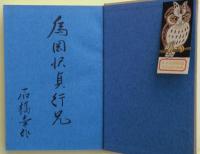 為岡沢貞行兄
石橋幸作